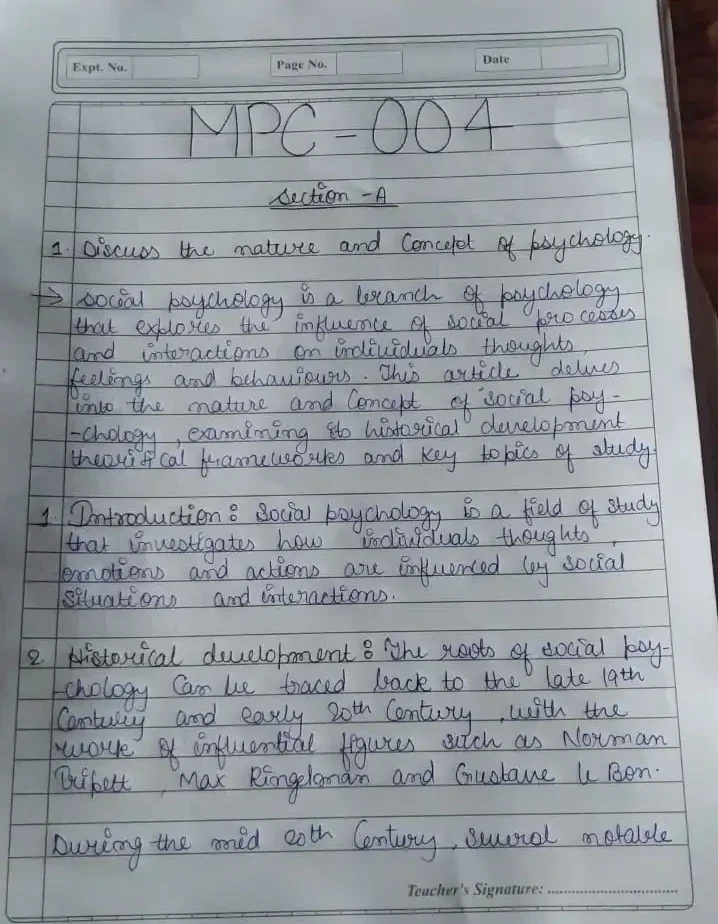 Expt. No.
Page No.
Date
MPC-004
Section -A
1. Discuss the nature and Concept of psychology.
→ Social psychology is a branch of psychology
that explores the influence of social processes
and interactions on individuals thoughts,
feelings and behaviours. This article delves
into the nature and Concept of social psy-
-chology, examining its historical development
theoritical frameworks and key topics of study.
1. Introduction : Social psychology is a field of study
that investigates how individuals thoughts,
emotions and actions are influenced by social
situations and interactions.
2 Historical development : The roots of social psy-
-chology Can be traced back to the late 19th
Century and early 20th Century, with the
work of influential figures such as Norman
Tripett, Max Ringelman and Gustave le Bon.
During the mid 20th Century, several notable
Teacher's Signature: ..............................